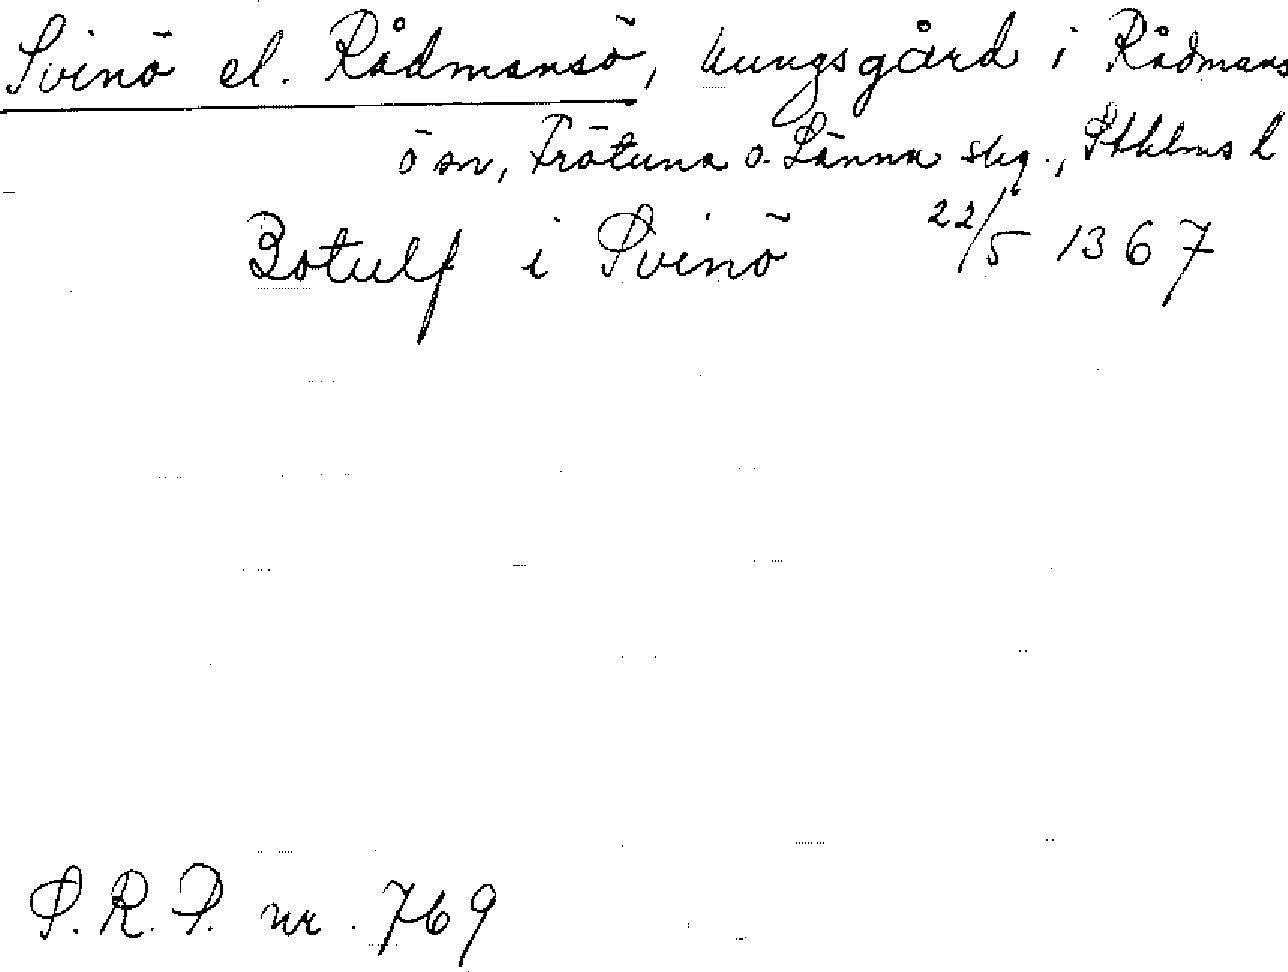 Svinö el. Rådmansö, kungsgård i Rådmans
ö sn, Frötuna o. Länna skg., Sthlms l
Botulf i Svinö 22/5 1367
S.R.P. nr. 769